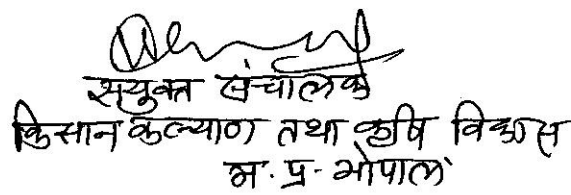 सयुक्त संचालक
किसान कल्याण तथा कृषि विकास
म. प्र. भोपाल